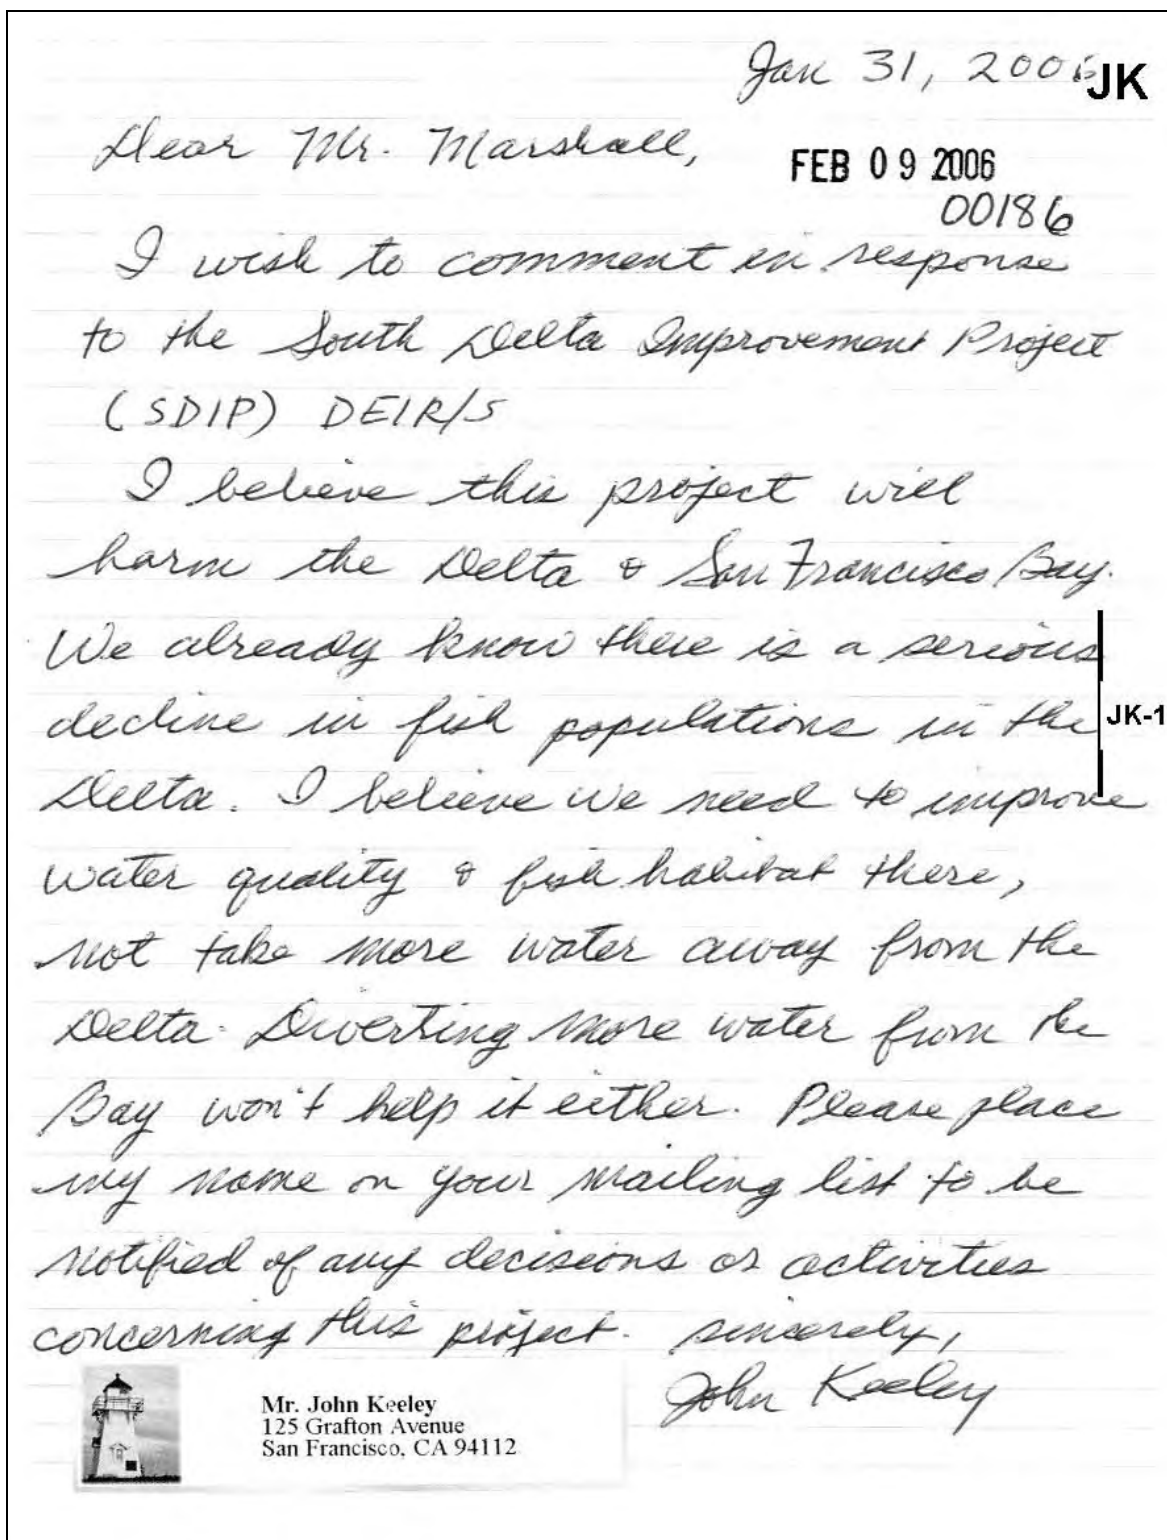 Jan 31, 2006 JK
Dear Mr. Marshall,
FEB 09 2006
00186
I wish to comment in response
to the South Delta Improvement Project
(SDIP) DEIR/S
I believe this project will
harm the Delta & San Francisco Bay.
We already know there is a serious
decline in fish populations in the
JK-1
Delta. I believe we need to improve
water quality & fish habitat there,
not take more water away from the
Delta. Diverting more water from the
Bay won't help it either. Please place
my name on your mailing list to be
notified of any decisions or activities
concerning this project. sincerely,
John Keeley
Mr. John Keeley
125 Grafton Avenue
San Francisco, CA 94112